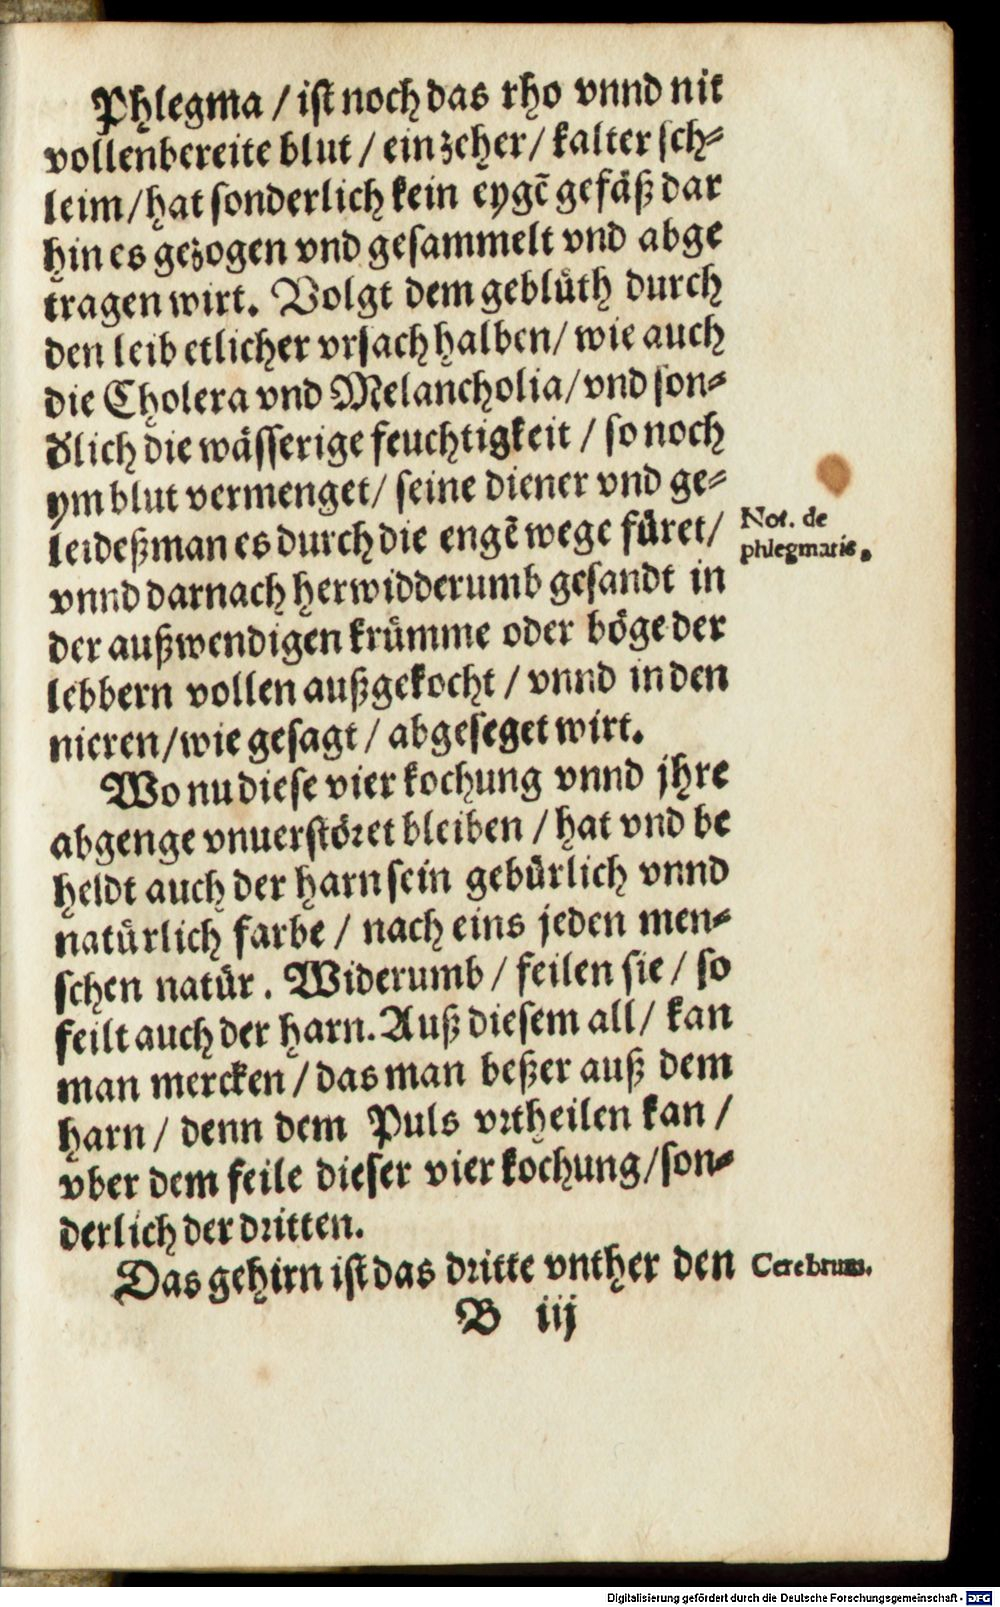 Phlegma / ist noch das rho vnnd nit
vollenbereite blut / ein zeher / kalter sch⸗
leim / hat sonderlich kein eygē gefäß dar
hin es gezogen vnd gesammelt vnd abge
tragen wirt. Volgt dem geblüth durch
den leib etlicher vrsach halben / wie auch
die Cholera vnd Melancholia / vnd son⸗
ðlich die wässerige feuchtigkeit / so noch
ym blut vermenget / seine diener vnd ge⸗
leideßman es durch die engē wege füret /
Not. de
phlegmatis.
vnnd darnach herwidderumb gesandt in
der außwendigen krümme oder böge der
lebbern vollen außgekocht / vnnd in den
nieren / wie gesagt / abgeseget wirt.
Wo nu diese vier kochung vnnd jhre
abgenge vnuerstöret bleiben / hat vnd be
heldt auch der harn sein gebürlich vnnd
natürlich farbe / nach eins jeden men⸗
schen natür. Widerumb / feilen sie / so
feilt auch der harn. Auß diesem all / kan
man mercken / das man beßer auß dem
harn / denn dem Puls vrtheilen kan /
vber dem feile dieser vier kochung / son⸗
derlich der dritten.
Das gehirn ist das dritte vnther den
Cerebrum.
B iij
Digitalisierung gefördert durch die Deutsche Forschungsgemeinschaft - DFG